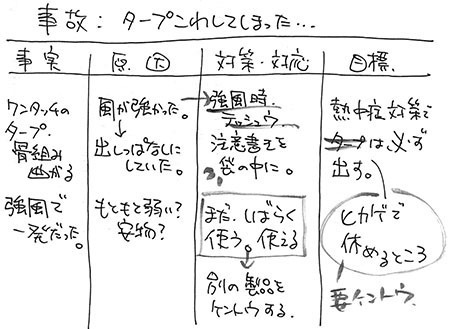 事故：タープこわしてしまった…
事実
原因
対策・対応
目標
ワンタッチの
タープ。
骨組み
曲がる
強風で
一発だった。
風が強かった。
出しっぱなしに
していた。
もともと弱い？
安物？
強風時、
テッシュウ
注意書きを
袋の中に。
まだ、しばらく
使う。使える
別の製品を
ケントウする。
熱中症対策で
タープは必ず
出す。
ヒカゲで
休めるところ
要ケントウ